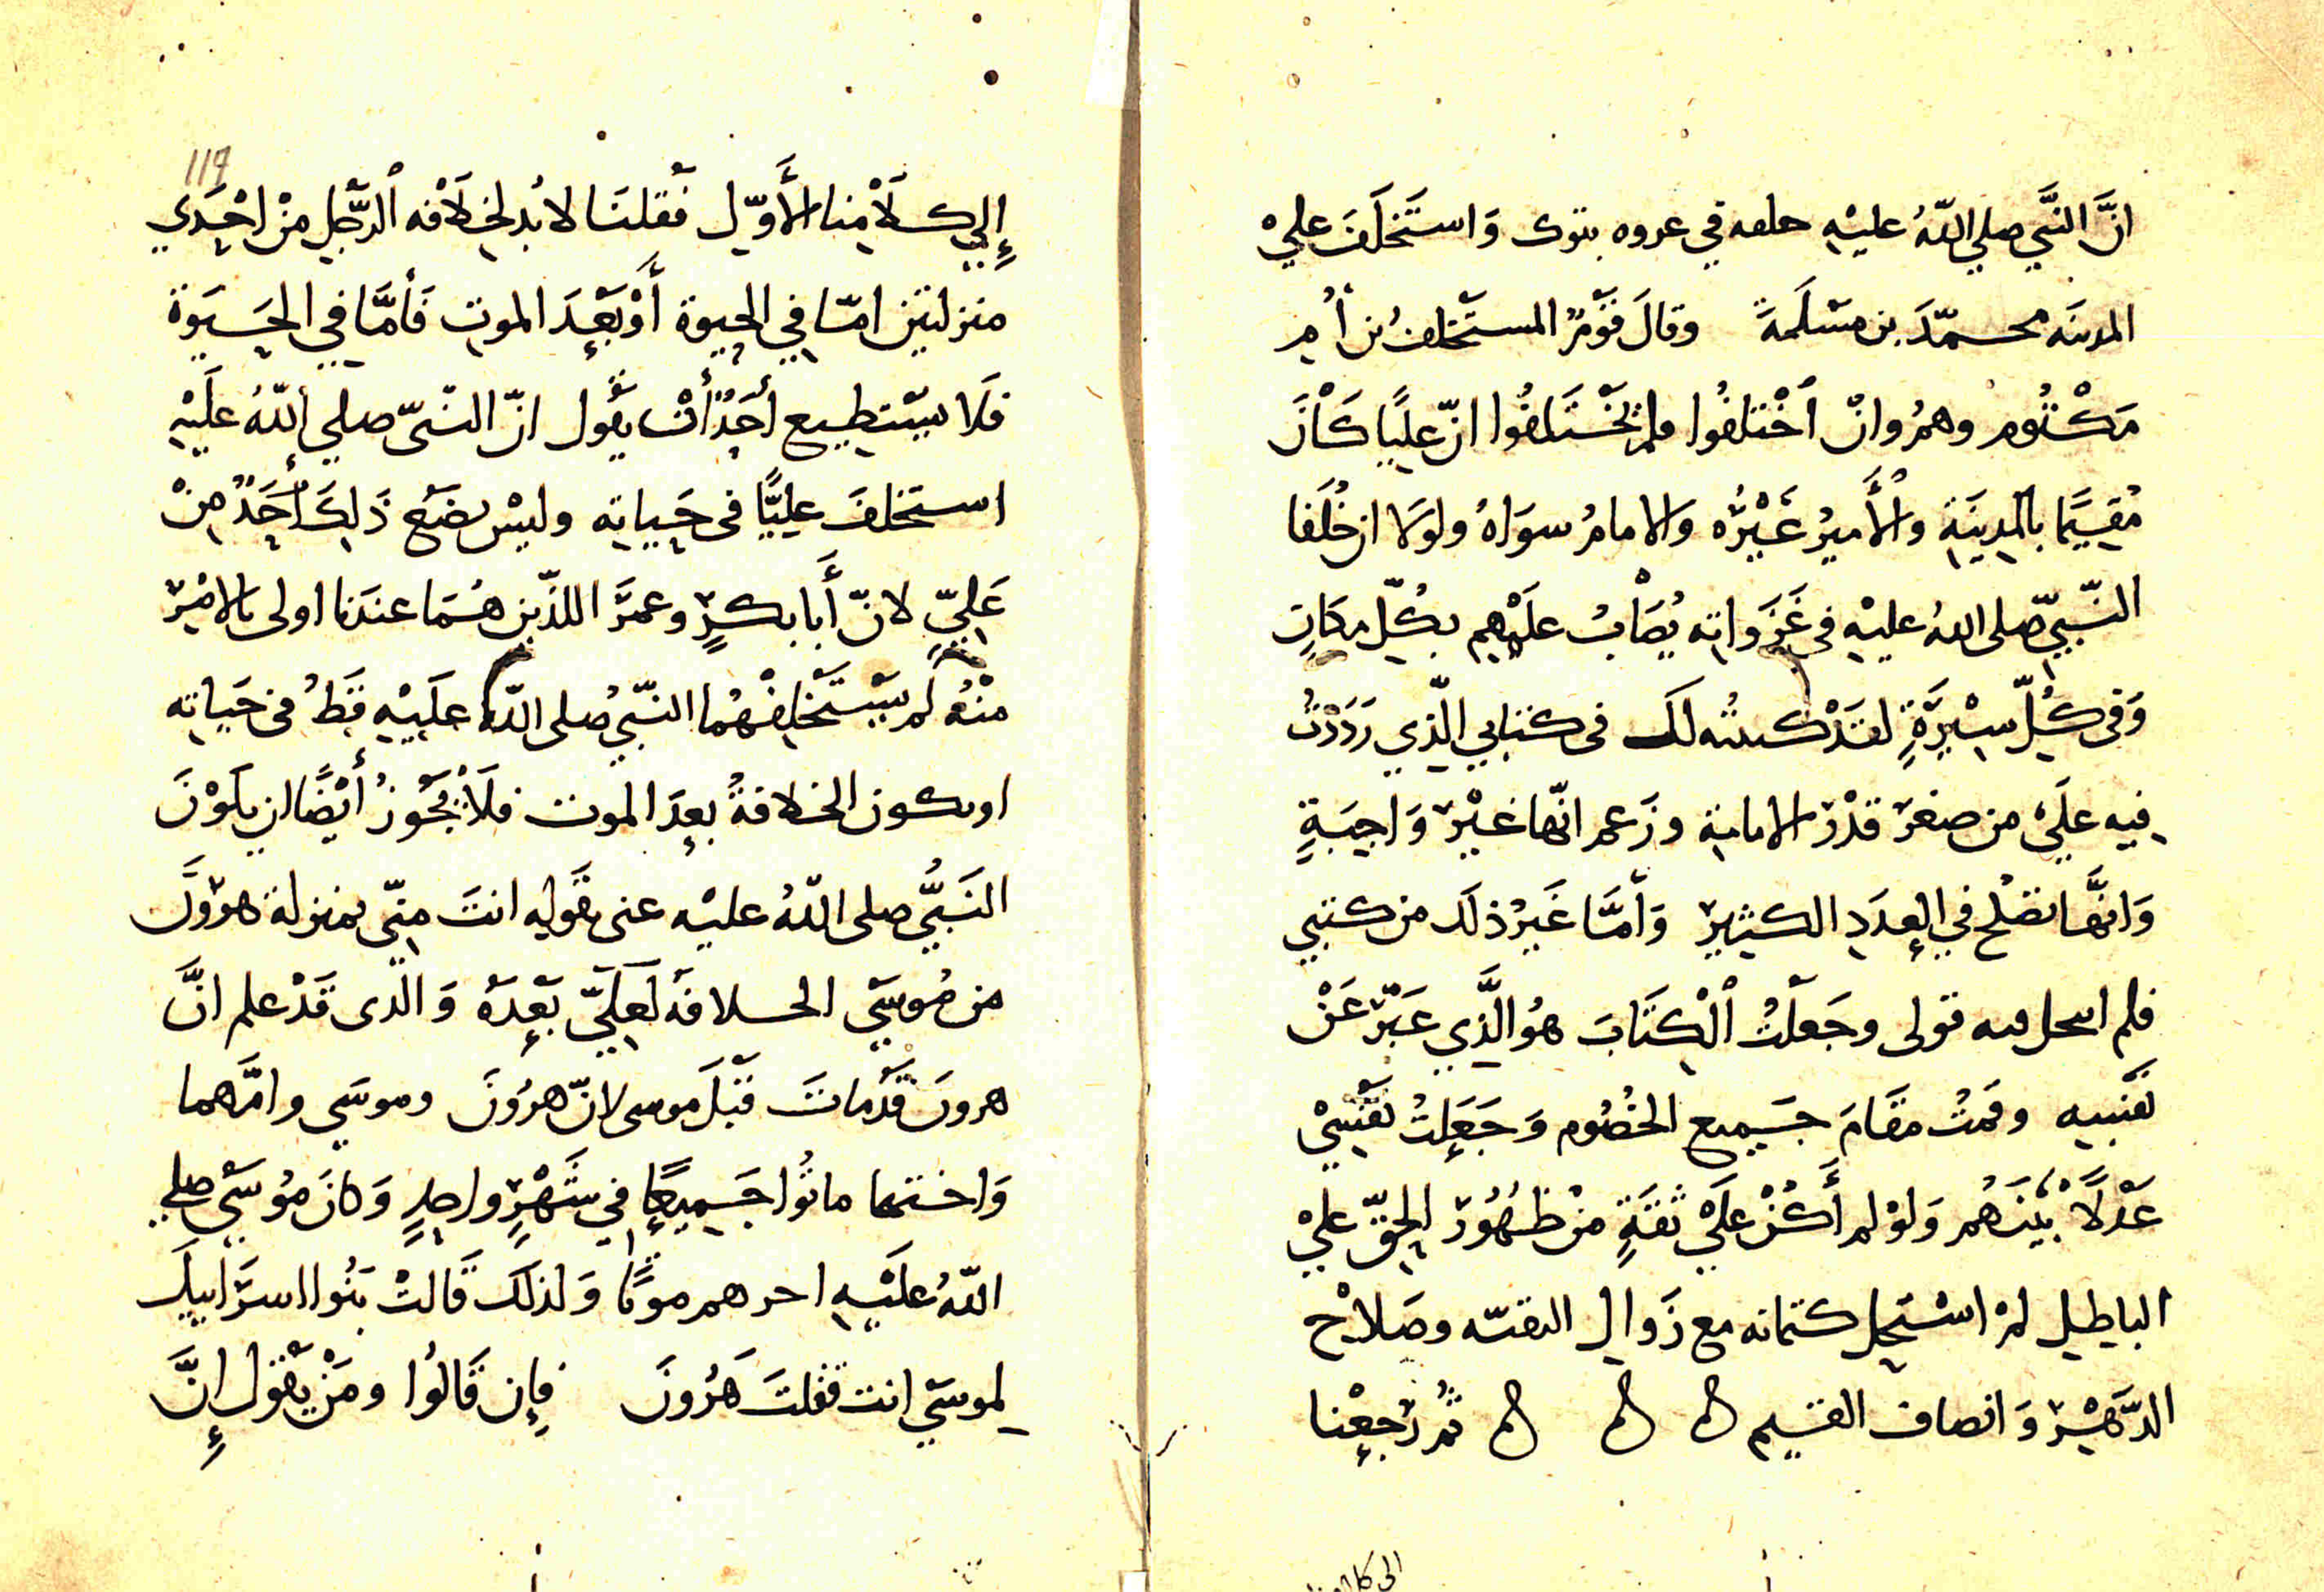 انَّ النَّبَّي صلي اللّهُ عليْهِ حلفه في عروه بتوك وَاستَخلَفَ عليْ
المدينَه محمّدَ بن مسْلَمةَ وقالَ قَوْمٌ المستَخلفُ بن أُم
مَكْتُوم وهمُ وانْ اخْتلفُوا فلم يخْتَلفُوا انّ عليًا كَانَ
مُقيمًا بالمدِينَةِ والأَميرُ غَيْرُه والامامُ سوَاهُ ولوَلا ان خُلَفا
النّبيِّ صلى اللهُ عليْهِ في غَزَواتِه يُصَابُ عليْهِم بكلّ مكَانٍ
وَفي كُلّ سِيْرَةٍ لقدْ كتبته لكَ في كتابي الّذي رَدَدْتُ
فِيه علَيْ من صغرَ قدْرَ الامامةِ وزَعم انّها غيْرَ وَاجِبَةٍ
وَانّهَا تصْلح في العدَدِ الكثِيرِ وَأمَّا غَيرُ ذلكَ من كتبي
فلم انتحل فيه قولى وجَعلْتُ الْكِتَابَ هوُ الَّذِي عَبّرَ عَنْ
نَفسِه وقمتُ مقَامَ جَميع الخُصُوم وَجَعَلتُ نفْسِيْ
عَدْلاً بيْنَهُم وَلوْ لم أَكُنْ علَيْ ثقَةٍ منْ ظُهُورَ الحقّ عليْ
الباطِل لمْ استَحِل كتمانه مع زَوالِ التقيّه وصَلاحِ
الدّهْرِ وَانصاف القيّم ثُم رَجعْنا
الى كلامنا
إِلي كلامِنا الأَوّلِ فَقلنَا لا بُد لخلَافه الرّجلِ منْ احْدَي
منزلتين امّا في الحيوة أَوْ بَعْدَ الموتِ فَأمَّا في الحَيَوة
فلَا يسْتطيع أحَدٌ أنْ يقُول انّ النبّىّ صلي اللّهُ علَيْهِ
استخلفَ عليًّا فى حَياتِه وليسْ يضَعَ ذَلِكَ أَحَدٌ منْ
عَليٍّ لانّ أَبا بكرٍ وعمرَ اللذَينِ هُمَا عندَنا اولى بالامْرِ
منْهُ لَم يسْتَخلِفْهُما النّبيُ صلى اللّهُ علَيْهِ قَطُ فى حَياتِه
او يكون الخلافةُ بعدَ الموت فلَا يَجُوزُ أيْضًا ان يكَوْنَ
النَبَّيُ صلى اللّهُ عليْه عنى بقَوله انتَ مِنّي بمنزلة هرُونَ
من مُوسَي الخلافَه لَعلَيّ بَعْدَهُ وَالّذى قَدْ علم انَّ
هرونَ قَدْ ماتَ قبْلَ موسى لانّ هرُونَ وموسَي وامَّهما
وَاختهما ماتُوا جَميعًا في شَهْرٍ واحدٍ وَكانَ مُوسَي صلي
اللّهُ علَيْهِ اخرهم موتًا وَلذلكَ قَالتْ بَنُوا اسرَاييلَ
لموسَي انت قتلتَ هَرُونَ فَإِن قَالُوا ومَنْ يقول إِنَّ
119